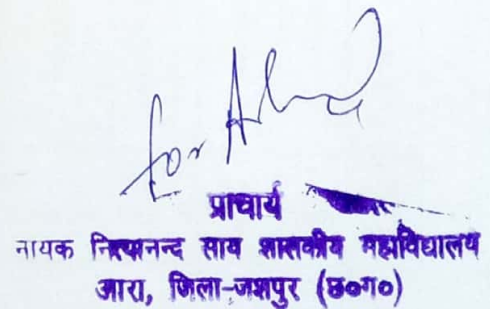 for
प्राचार्य
नायक नित्यानन्द साय शासकीय महाविद्यालय
आरा, जिला-जशपुर (छ०ग०)